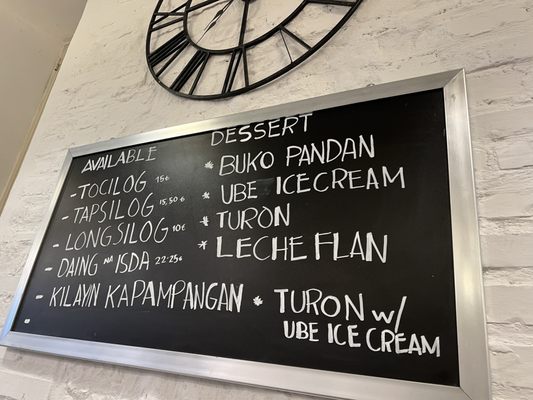 AVAILABLE
- TOCILOG 15€
- TAPSILOG 15,50€
- LONGSILOG 10€
- DAING NA ISDA 22-25€
- KILAYIN KAPAMPANGAN
DESSERT
* BUKO PANDAN
* UBE ICECREAM
* TURON
* LECHE FLAN
* TURON W/
UBE ICE CREAM